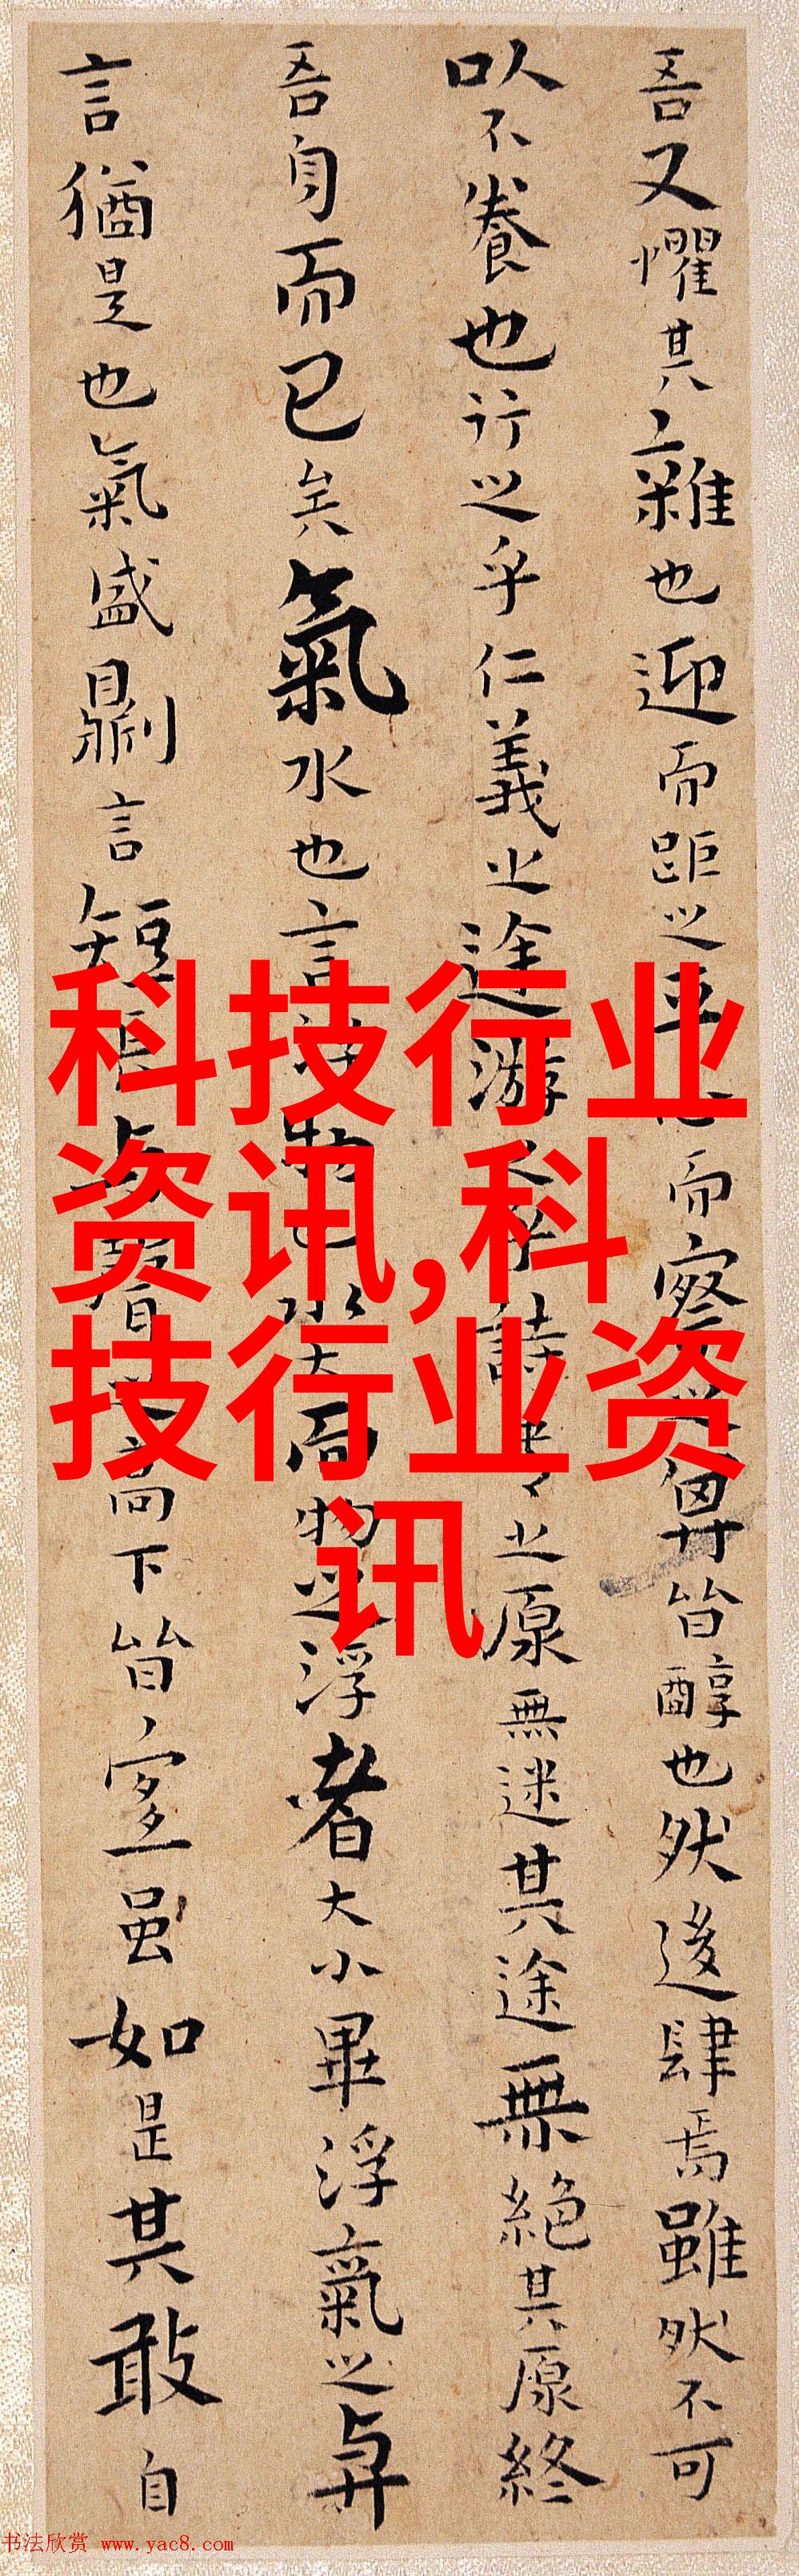 吾又懼其雜也迎而距之平心而察之皆醇也然後肆焉雖然不可
以不養也行之乎仁義之途游之乎詩書之原無迷其途無絕其原終
吾身而已矣氣水也言浮物也水大而物之浮者大小畢浮氣之與
言猶是也氣盛則言短長與聲之高下皆宜虽如是其敢自
科技行业
资讯,科
技行业资
讯
书法欣赏 www.yac8.com